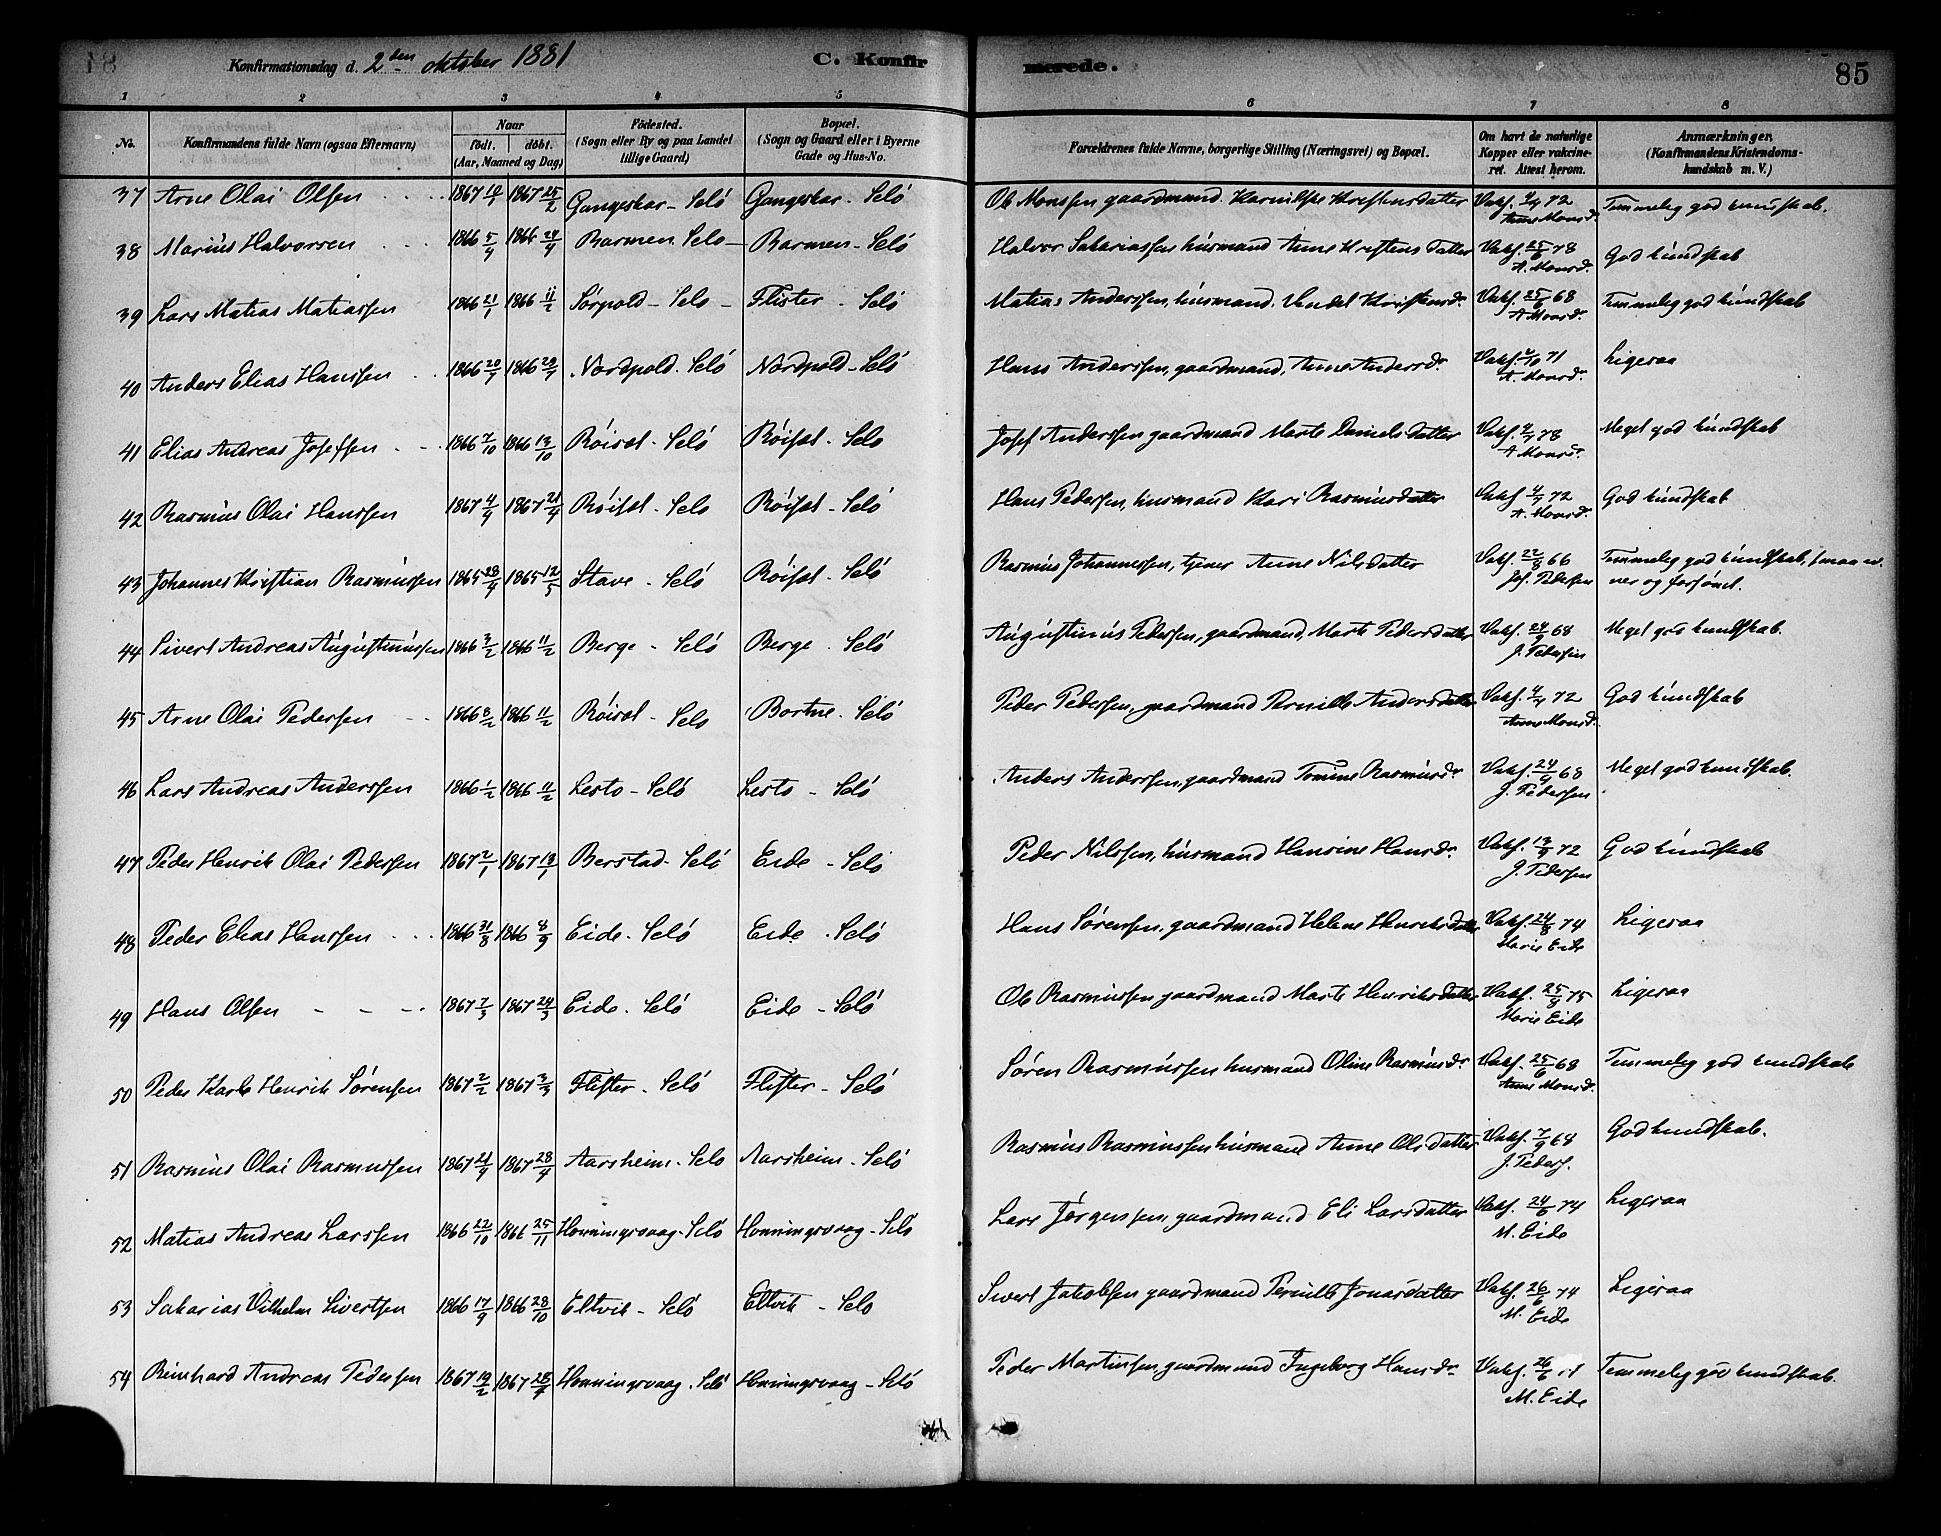 Konfirmationsdag d. 2den oktober 1881 C. Konfirmerede. 85
1 2 3 4 5 6 7 8
No. Konfirmandens fulde Navn (ogsaa Efternavn) Naar född. döbt. (Aar, Maaned og Dag) Födested. (Sogn eller By og paa Landet tillige Gaard) Bopæl. (Sogn og Gaard eller i Byerne Gade og Hus-No. Forældrenes fulde Navne, borgerlige Stilling (Næringsvei) og Bopæl. Om havt de naturlige Kopper eller vakcineret. Attest herom. Anmærkninger, (Konfirmandens Kristendomskundskab m. V.)
37 Arne Olai Olsen 1867 1867 25/2 Gangeskar - Selö Gangeskar - Selö Ole Monssen gaardmand Vakś. 4/7 72 Temmeleg god kundskab.
Anne Monsd.
38 Marius Halvorsen 1866 5/4 1866 24/4 Barmen Selo - Barmen - Selö Halvor Sakariassen húsmand Anne Kristens Datter Vakś. 25/6 78 God kúndskab
A. Monsd.
39 Lars Matias Matiassen 1866 21/1 1866 11/2 Sörpold - Selo - Flister - Selö Matias Anderssen, húsmand. Vendel Kristensdr Vakś. 25/6 68 Temmeleg god kúndskab
A Monsdr.
40 Anders Elias Hanssen 1866 20/7 1866 29/7 Nordpold. Selö Nordpold - Selö Hans Anderssen, gaardmand, Anne Andersdr Vakś. 71 Ligesaa
A. Monsdr.
41 Elias Andreas Josefsen 1866 7/10 1866 13/10 Röiset - Selö Röiset - Selo Josef Anderssen gaardmand Marte Danielsdatter Vakś. 4/7 78 Meget god kúndskab
A Monsdr.
42 Rasmus Olai Hanssen 1867 4/4 1867 21/4 Röiset - Selo Röiset - Selö Hans Pederssen, husmand Kari Rasmúsdatter Vakś 4/7 72 God kúndskab
A. Monsdr.
43 Johannes Kristian Rasmússen 1865 28/4 1865 12/5 Stave - Selö Röiset - Selö Rasmús Johannessen, tjener Anne Nilsdatter Vakś. 22/8 66 Temmeleg god kúndskab,
Joh. Pedersen ner og forsönet.
44 Sivert Andreas Aúgústinússen 1866 3/2 1866 11/2 Berge - Selö Berge - Selö Aúgústinús Pederssen, gaardmand, Marte Pedersdatter Vakś. 24/9 68 Meget god kundskab.
J. Pedersen
45 Arne Olai Pedersen 1866 8/2 1866 11/2 Röiset - Selo Bortne - Selö Peder Pedersen, gaardmand Pernille Andersdatter Vakś. 4/7 72 God kúndskab
Anne Monsd.
46 Lars Andreas Anderssen 1866 1/2 1866 11/2 Lesto - Selö Lesto - Selö Anders Anderssen, gaardmand Tomine Rasmusdr Vakś. 24/9 68 Meget god kundskab.
J. Pedersen
47 Peder Henrik Olai Pedersen 1867 2/1 1867 13/1 Berstad - Selö Eide - Selö Peder Nilssen, húsmand Hansine Hansdr Vakś. 13/9 72 God kúndskab
J. Pedersen
48 Peder Elias Hanssen 1866 31/8 1866 8/9 Eide - Selö Eide - Selö Hans Sörensen, gaardmand Helene Henriksdatter Vakś. 24/8 74 Ligesaa
Marie Eide
49 Hans Olsen 1867 7/3 1867 24/3 Eide - Selö Eide - Selö Ole Rasmússen gaardmand Marte Henriksdatter Vakś. 25/8 75 Ligesaa
Marie Eide
50 Peder Karle Henrik Sörensen 1867 2/2 1867 3/3 Flister - Selö Flister - Selö Sören Rasmússen husmand Oline Rasmúsdr Vakś. 25/6 68 Temmeleg god kundskab
Anne Monsd.
51 Rasmus Olai Rasmussen 1867 21/4 1867 28/4 Aarsheim - Selo Aarsheim - Selö Rasmús Rasmússen húsmand Anne Olsdatter Vakś. 7/9 68 God kundskab.
J. Peders.
52 Matias Andreas Larssen 1866 22/10 1866 25/11 Honningsvaag - Selö Honningsvaag - Selö Lars Jörgensen, gaardmand Eli Larsdatter Vakś. 24/6 74 Ligesaa
M. Eide
53 Sakarias Vilhelm Sivertsen 1866 17/9 1866 28/10 Eltvik - Selö Eltvik - Selo Sivert Jakobsen gaardmand Pernille Jonasdatter Vakś. 26/6 74 Ligesaa
M. Eide
54 Reinhard Andreas Pedersen 1867 19/2 1867 Honningsvaag - Selö Honningsvaag - Selö Peder Martinsen, gaardmand Ingeborg Hansdr Vakś. 26/6 Temmeleg god kundskab.
M. Eide